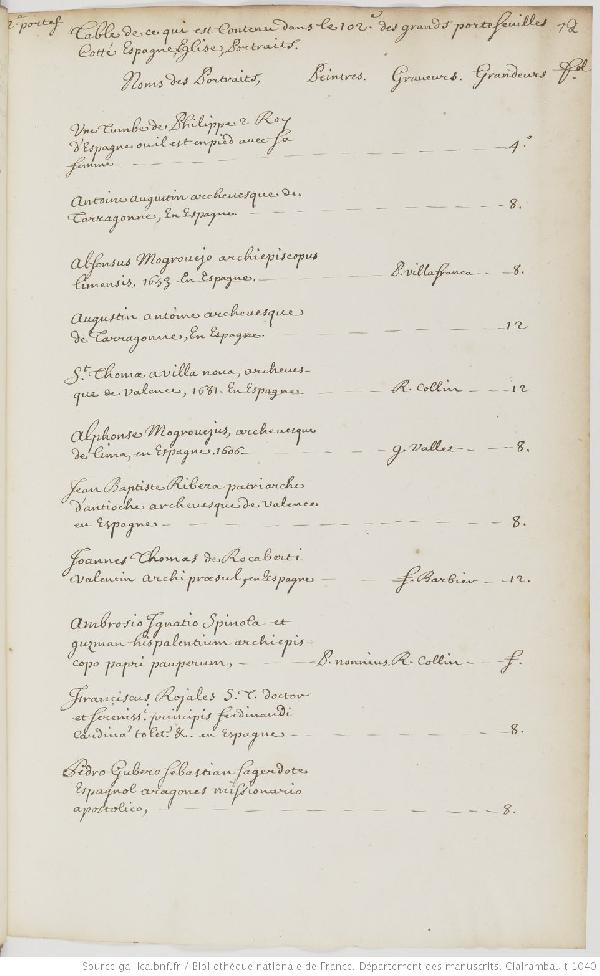 2.e portef.
Table de ce qui est Contenu dans le 102.e des grands portefeuilles 72
Cotté Espagne Eglise, Portraits.
Noms des Portraits, Peintres. Graveurs. Grandeurs
Une Tombe de Philippe 2 Roy
d'Espagne ou il est en pied avec sa
femme 4.o
Antoine augustin archevesque de
Tarragonne, En Espagne 8.
Alfonsus Mogrouejo archiepiscopus
limensis, 1653 En Espagne, P. villafranca 8.
Augustin antoine archevesque
de Tarragonne, En Espagne 12
St. Thomæ a villa nova, archeves-
que de Valence, 1681. En Espagne R. Collin 12
Alphonse Mogrouejus, archevesque
de Lima, en Espagne, 1606 g. Valles 8.
Jean Baptiste Ribera patriarche
d'antioche archevesque de Valence
en Espagne 8.
Joannes Thomas de Rocaberti
Valentin archi præsul, en Espagne f. Barbier 12.
Ambrosio Ignatio Spinola et
guzman hispalentium archiepis
copo papri pauperum, P. nonnius. R. Collin f.
Franciscus Rojales S. T. doctor
et sereniss. principis ferdinandi
Cardina. tolet. &. en Espagne 8.
Pedro Gubero sebastian sagerdote
Espagnol aragones missionario
apostolico, 8.
Source gallica.bnf.fr / Bibliothèque nationale de France. Département des manuscrits. Clairambault 1040